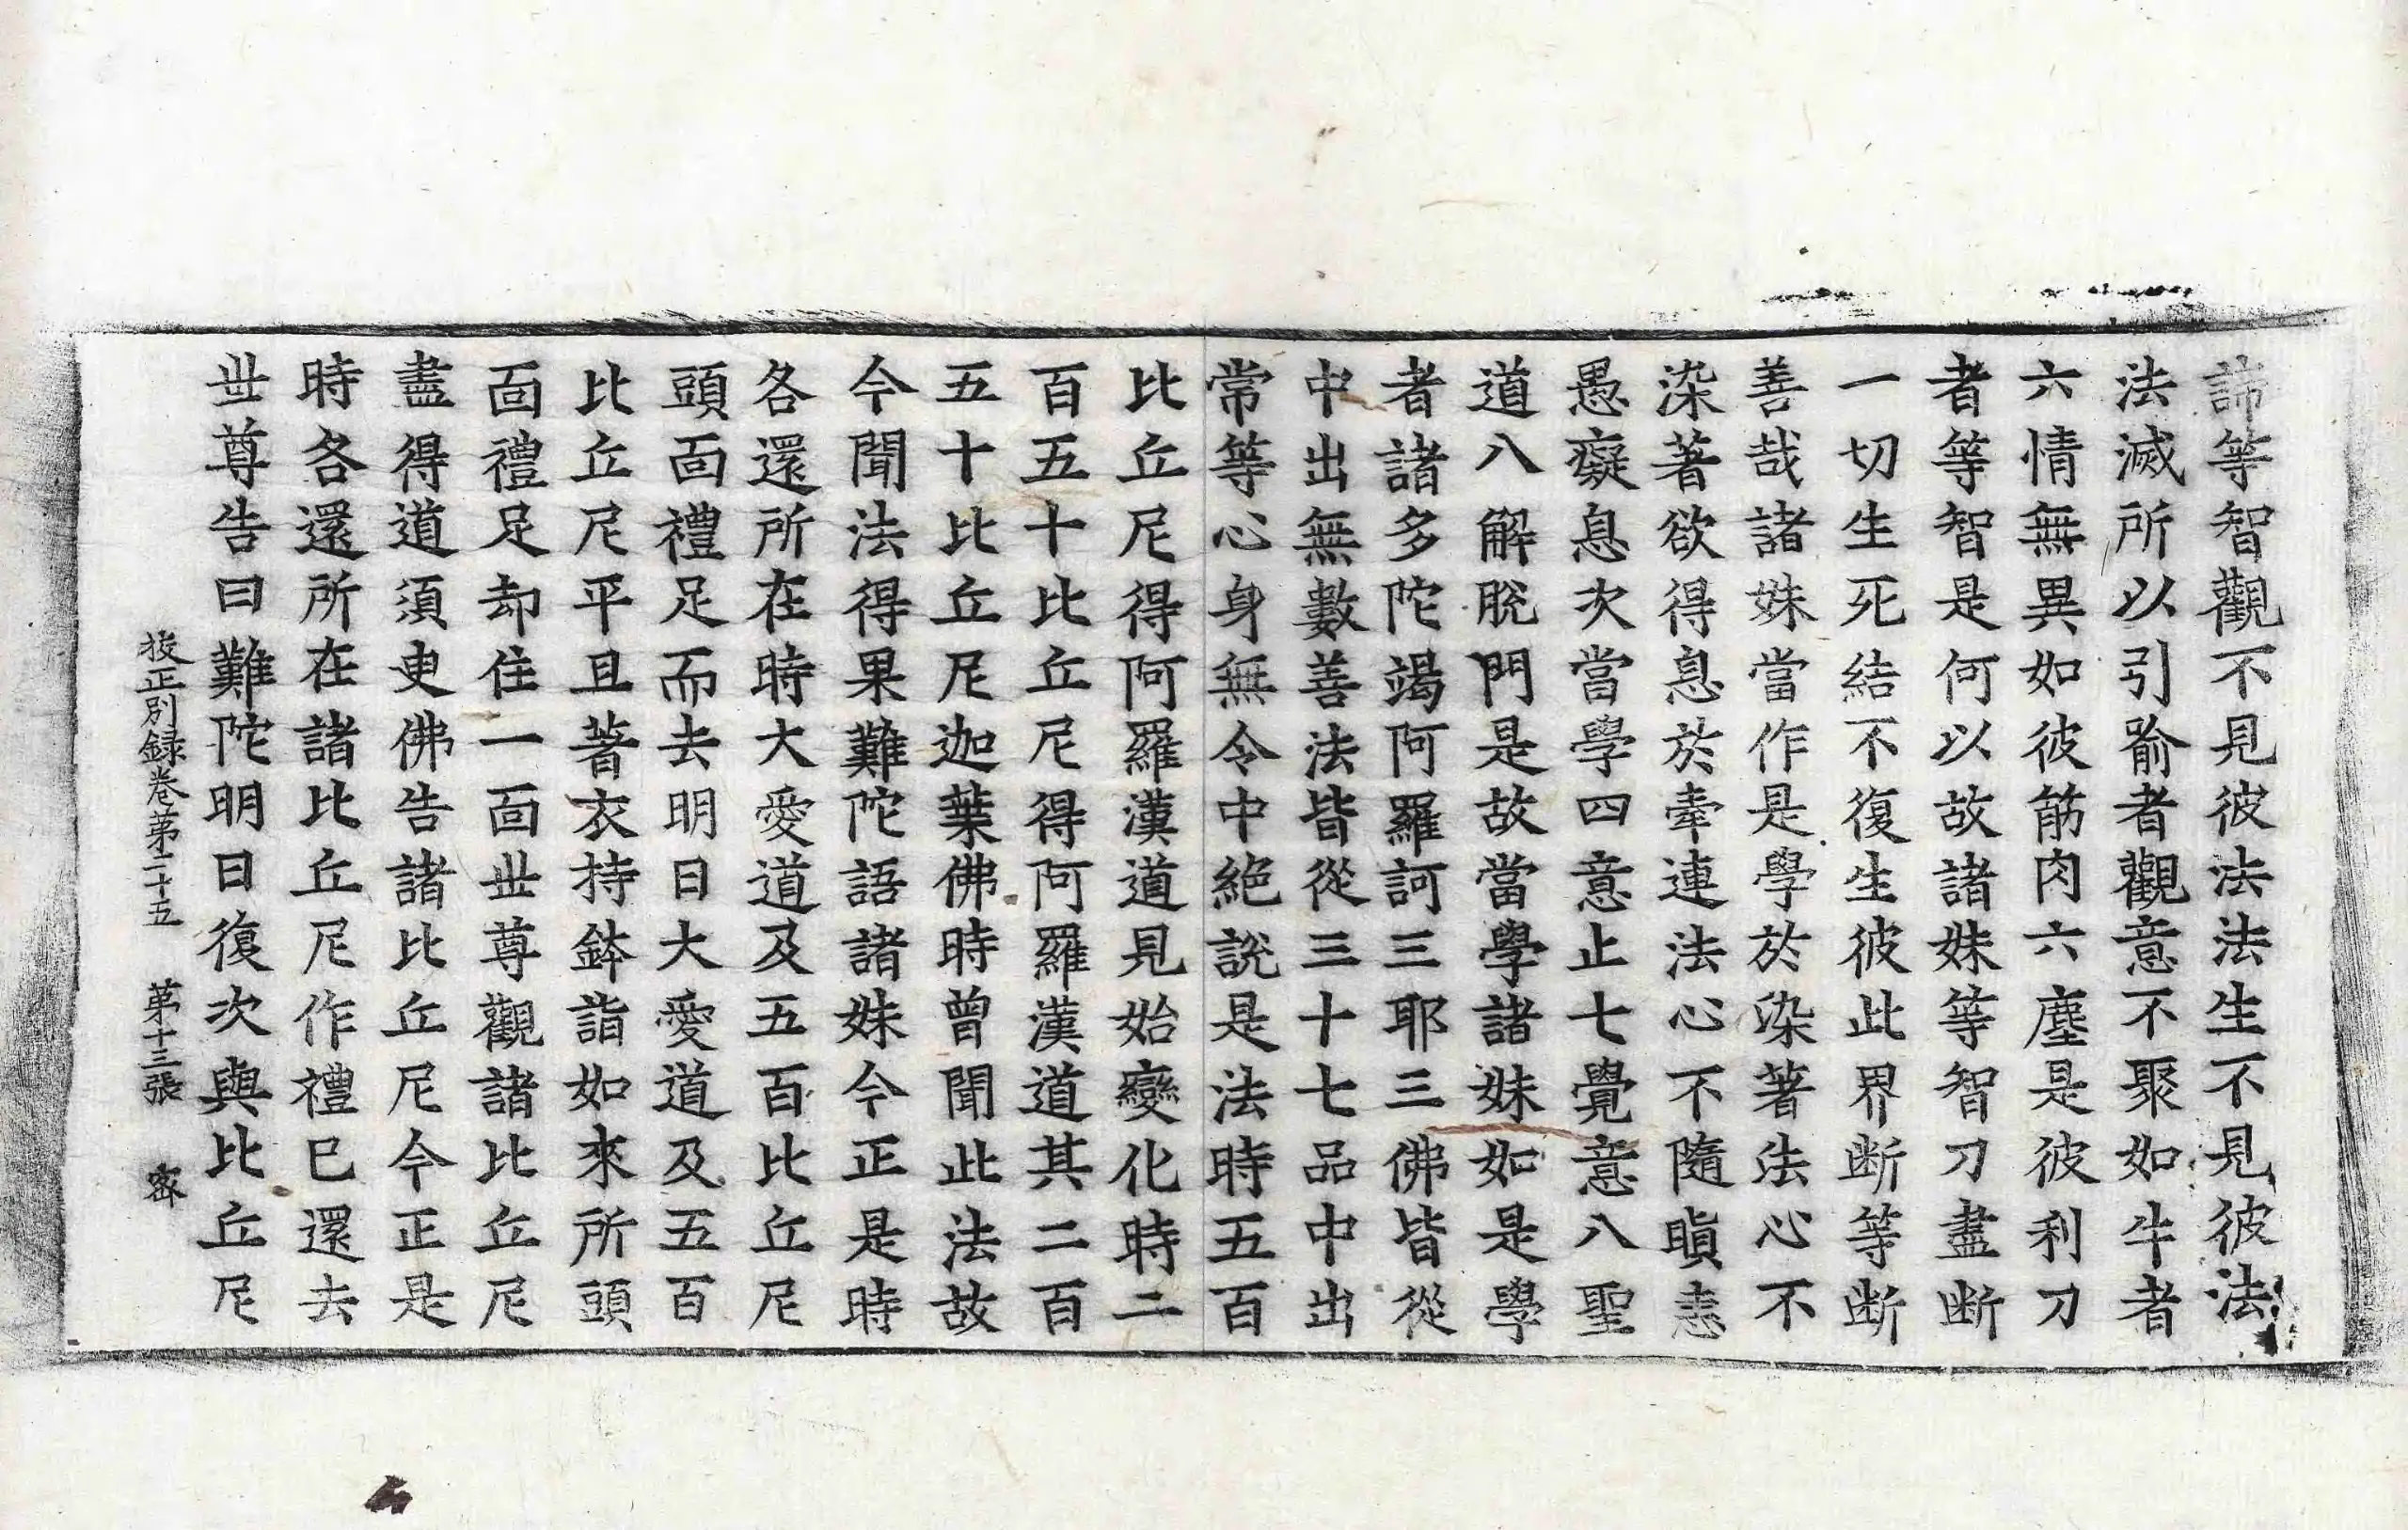 諦等智觀不見彼法法生不見彼法
法滅所以引喻者觀意不聚如牛者
六情無異如彼筋肉六塵是彼利刀
者等智是何以故諸妹等智刀盡断
一切生死結不復生彼此界断等断
善哉諸妹當作是學於染著法心不
染著欲得息於牽連法心不隨瞋恚
愚癡息次當學四意止七覺意八聖
道八解脫門是故當學諸妹如是學
者諸多陀竭阿羅訶三耶三佛皆從
中出無數善法皆從三十七品中出
常等心身無令中絕說是法時五百
比丘尼得阿羅漢道見始變化時二
百五十比丘尼得阿羅漢道其二百
五十比丘尼迦葉佛時曾聞此法故
今聞法得果難陀語諸妹今正是時
各還所在時大愛道及五百比丘尼
頭面禮足而去明日大愛道及五百
比丘尼平旦著衣持鉢詣如來所頭
面禮足却住一面世尊觀諸比丘尼
盡得道須臾佛告諸比丘尼今正是
時各還所在諸比丘尼作禮已還去
世尊告曰難陀明日復次與比丘尼
挍正別録卷苐二十五 苐十三張 宻